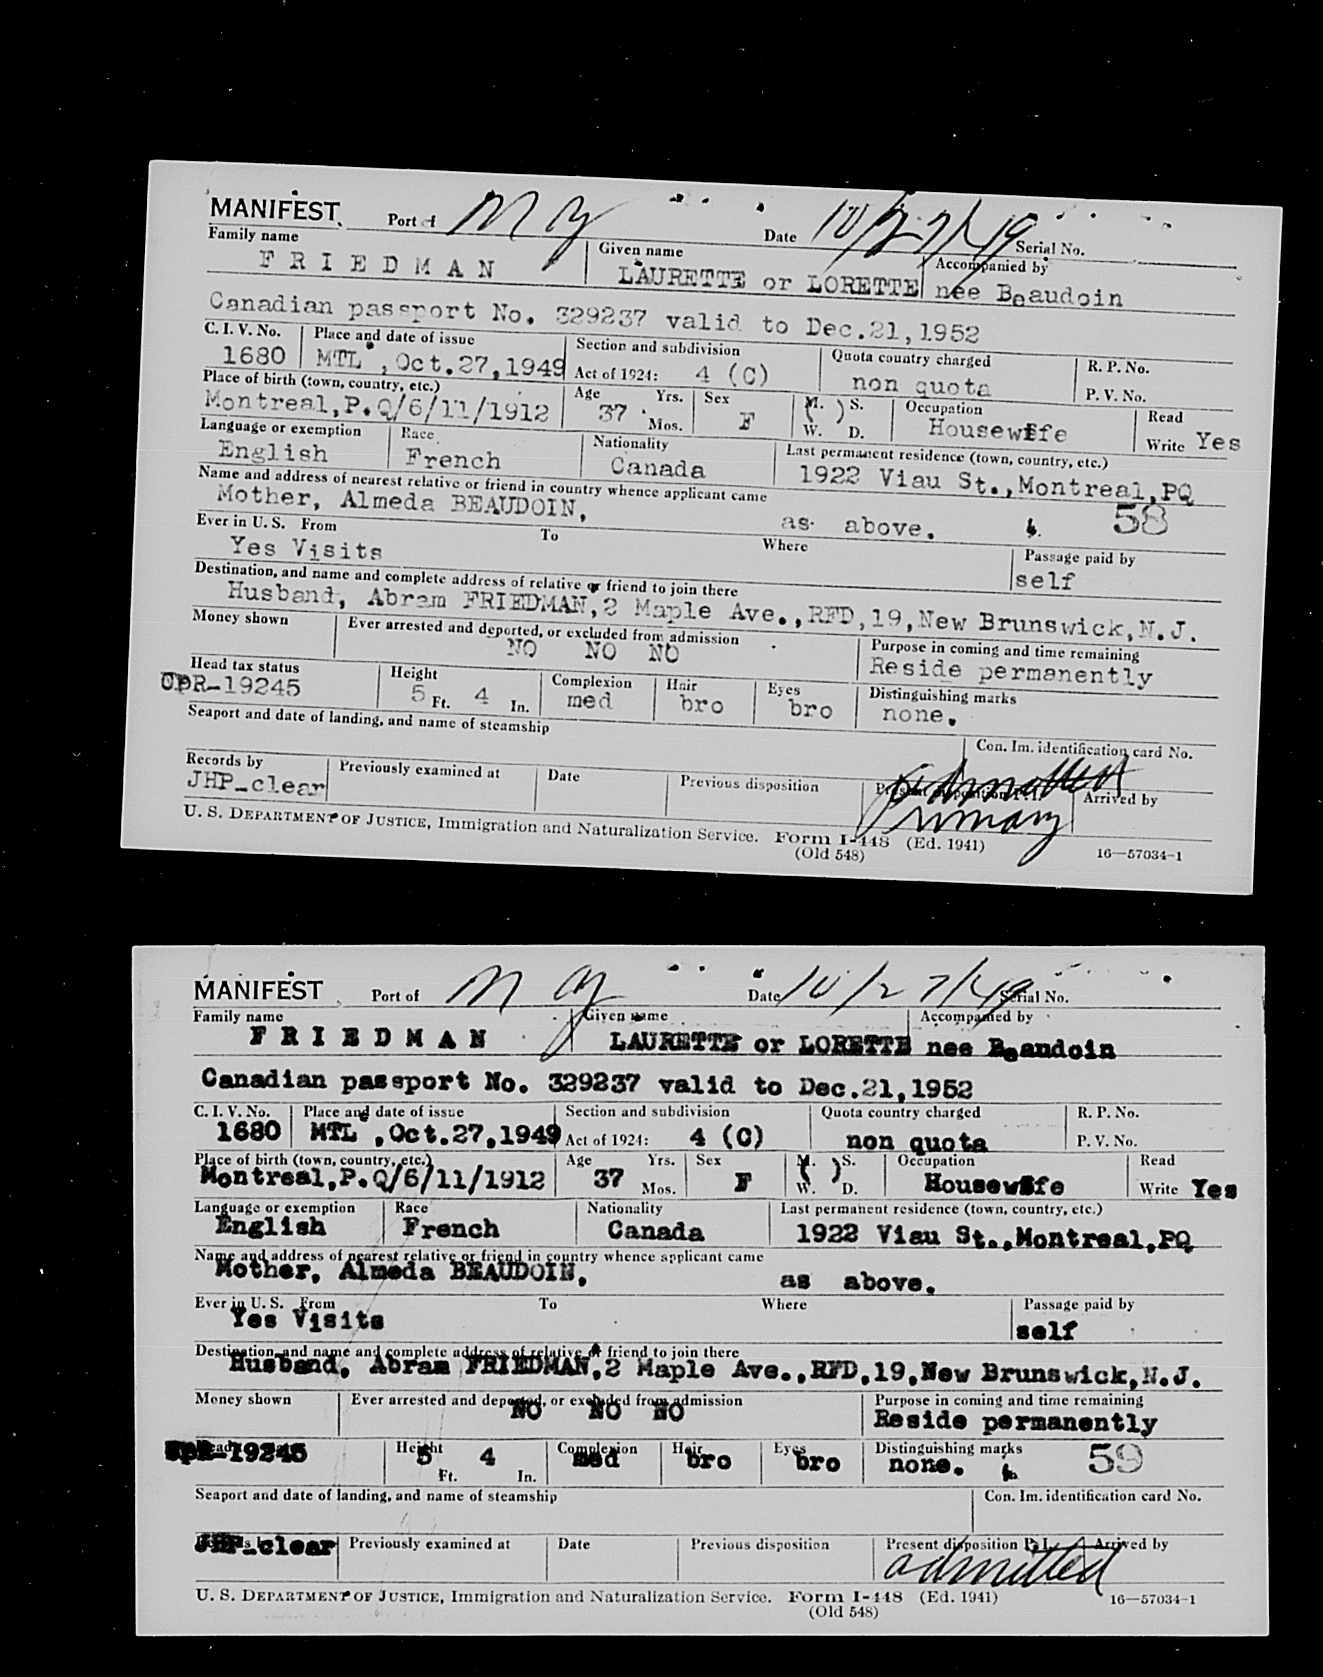 MANIFEST Port of N Y Date 10/27/49 Serial No.
Family name Given name Accompanied by
F R I E D M A N LAURETTE or LORETTE nee Beaudoin
Canadian passport No. 329237 valid to Dec.21,1952
C. I. V. No. Place and date of issue Section and subdivision Quota country charged R. P. No.
1680 MTL ,Oct.27,1949 Act of 1924: 4 (C) non quota P. V. No.
Place of birth (town, country, etc.) Age Yrs. Sex M. S. Occupation Read
Montreal,P.Q/6/11/1912 37 Mos. F ( ) W. D. Housewife Write Yes
Language or exemption Race Nationality Last permanent residence (town, country, etc.)
English French Canada 1922 Viau St.,Montreal,PQ
Name and address of nearest relative or friend in country whence applicant came
Mother, Almeda BEAUDOIN, as above. 58
Ever in U. S. From To Where Passage paid by
Yes Visits self
Destination, and name and complete address of relative or friend to join there
Husband, Abram FRIEDMAN,2 Maple Ave.,RFD,19,New Brunswick,N.J.
Money shown Ever arrested and deported, or excluded from admission Purpose in coming and time remaining
NO NO NO Reside permanently
Head tax status Height Complexion Hair Eyes Distinguishing marks
-19245 5 Ft. 4 In. med bro bro none.
Seaport and date of landing, and name of steamship Con. Im. identification card No.
Records by Previously examined at Date Previous disposition Present disposition Arrived by
JHP-clear Admitted
Primary
U. S. DEPARTMENT OF JUSTICE, Immigration and Naturalization Service. Form I-448 (Ed. 1941) 16—57034-1
(Old 548)
MANIFEST Port of N Y Date 10/27/49 Serial No.
Family name Given name Accompanied by
F R I E D M A N LAURETTE or LORETTE nee Beaudoin
Canadian passport No. 329237 valid to Dec.21,1952
C. I. V. No. Place and date of issue Section and subdivision Quota country charged R. P. No.
1680 MTL ,Oct.27,1949 Act of 1924: 4 (C) non quota P. V. No.
Place of birth (town, country, etc.) Age Yrs. Sex M. S. Occupation Read
Montreal,P.Q/6/11/1912 37 Mos. F ( ) W. D. Housewife Write Yes
Language or exemption Race Nationality Last permanent residence (town, country, etc.)
English French Canada 1922 Viau St.,Montreal,PQ
Name and address of nearest relative or friend in country whence applicant came
Mother, Almeda BEAUDOIN, as above.
Ever in U. S. From To Where Passage paid by
Yes Visits self
Destination, and name and complete address of relative or friend to join there
Husband, Abram FRIEDMAN,2 Maple Ave.,RFD,19,New Brunswick,N.J.
Money shown Ever arrested and deported, or excluded from admission Purpose in coming and time remaining
NO NO NO Reside permanently
Height Complexion Hair Eyes Distinguishing marks
-19245 5 Ft. 4 In. med bro bro none. 59
Seaport and date of landing, and name of steamship Con. Im. identification card No.
Previously examined at Date Previous disposition Present disposition P. I. Arrived by
JHP-clear admitted
U. S. DEPARTMENT OF JUSTICE, Immigration and Naturalization Service. Form I-448 (Ed. 1941) 16—57034-1
(Old 548)